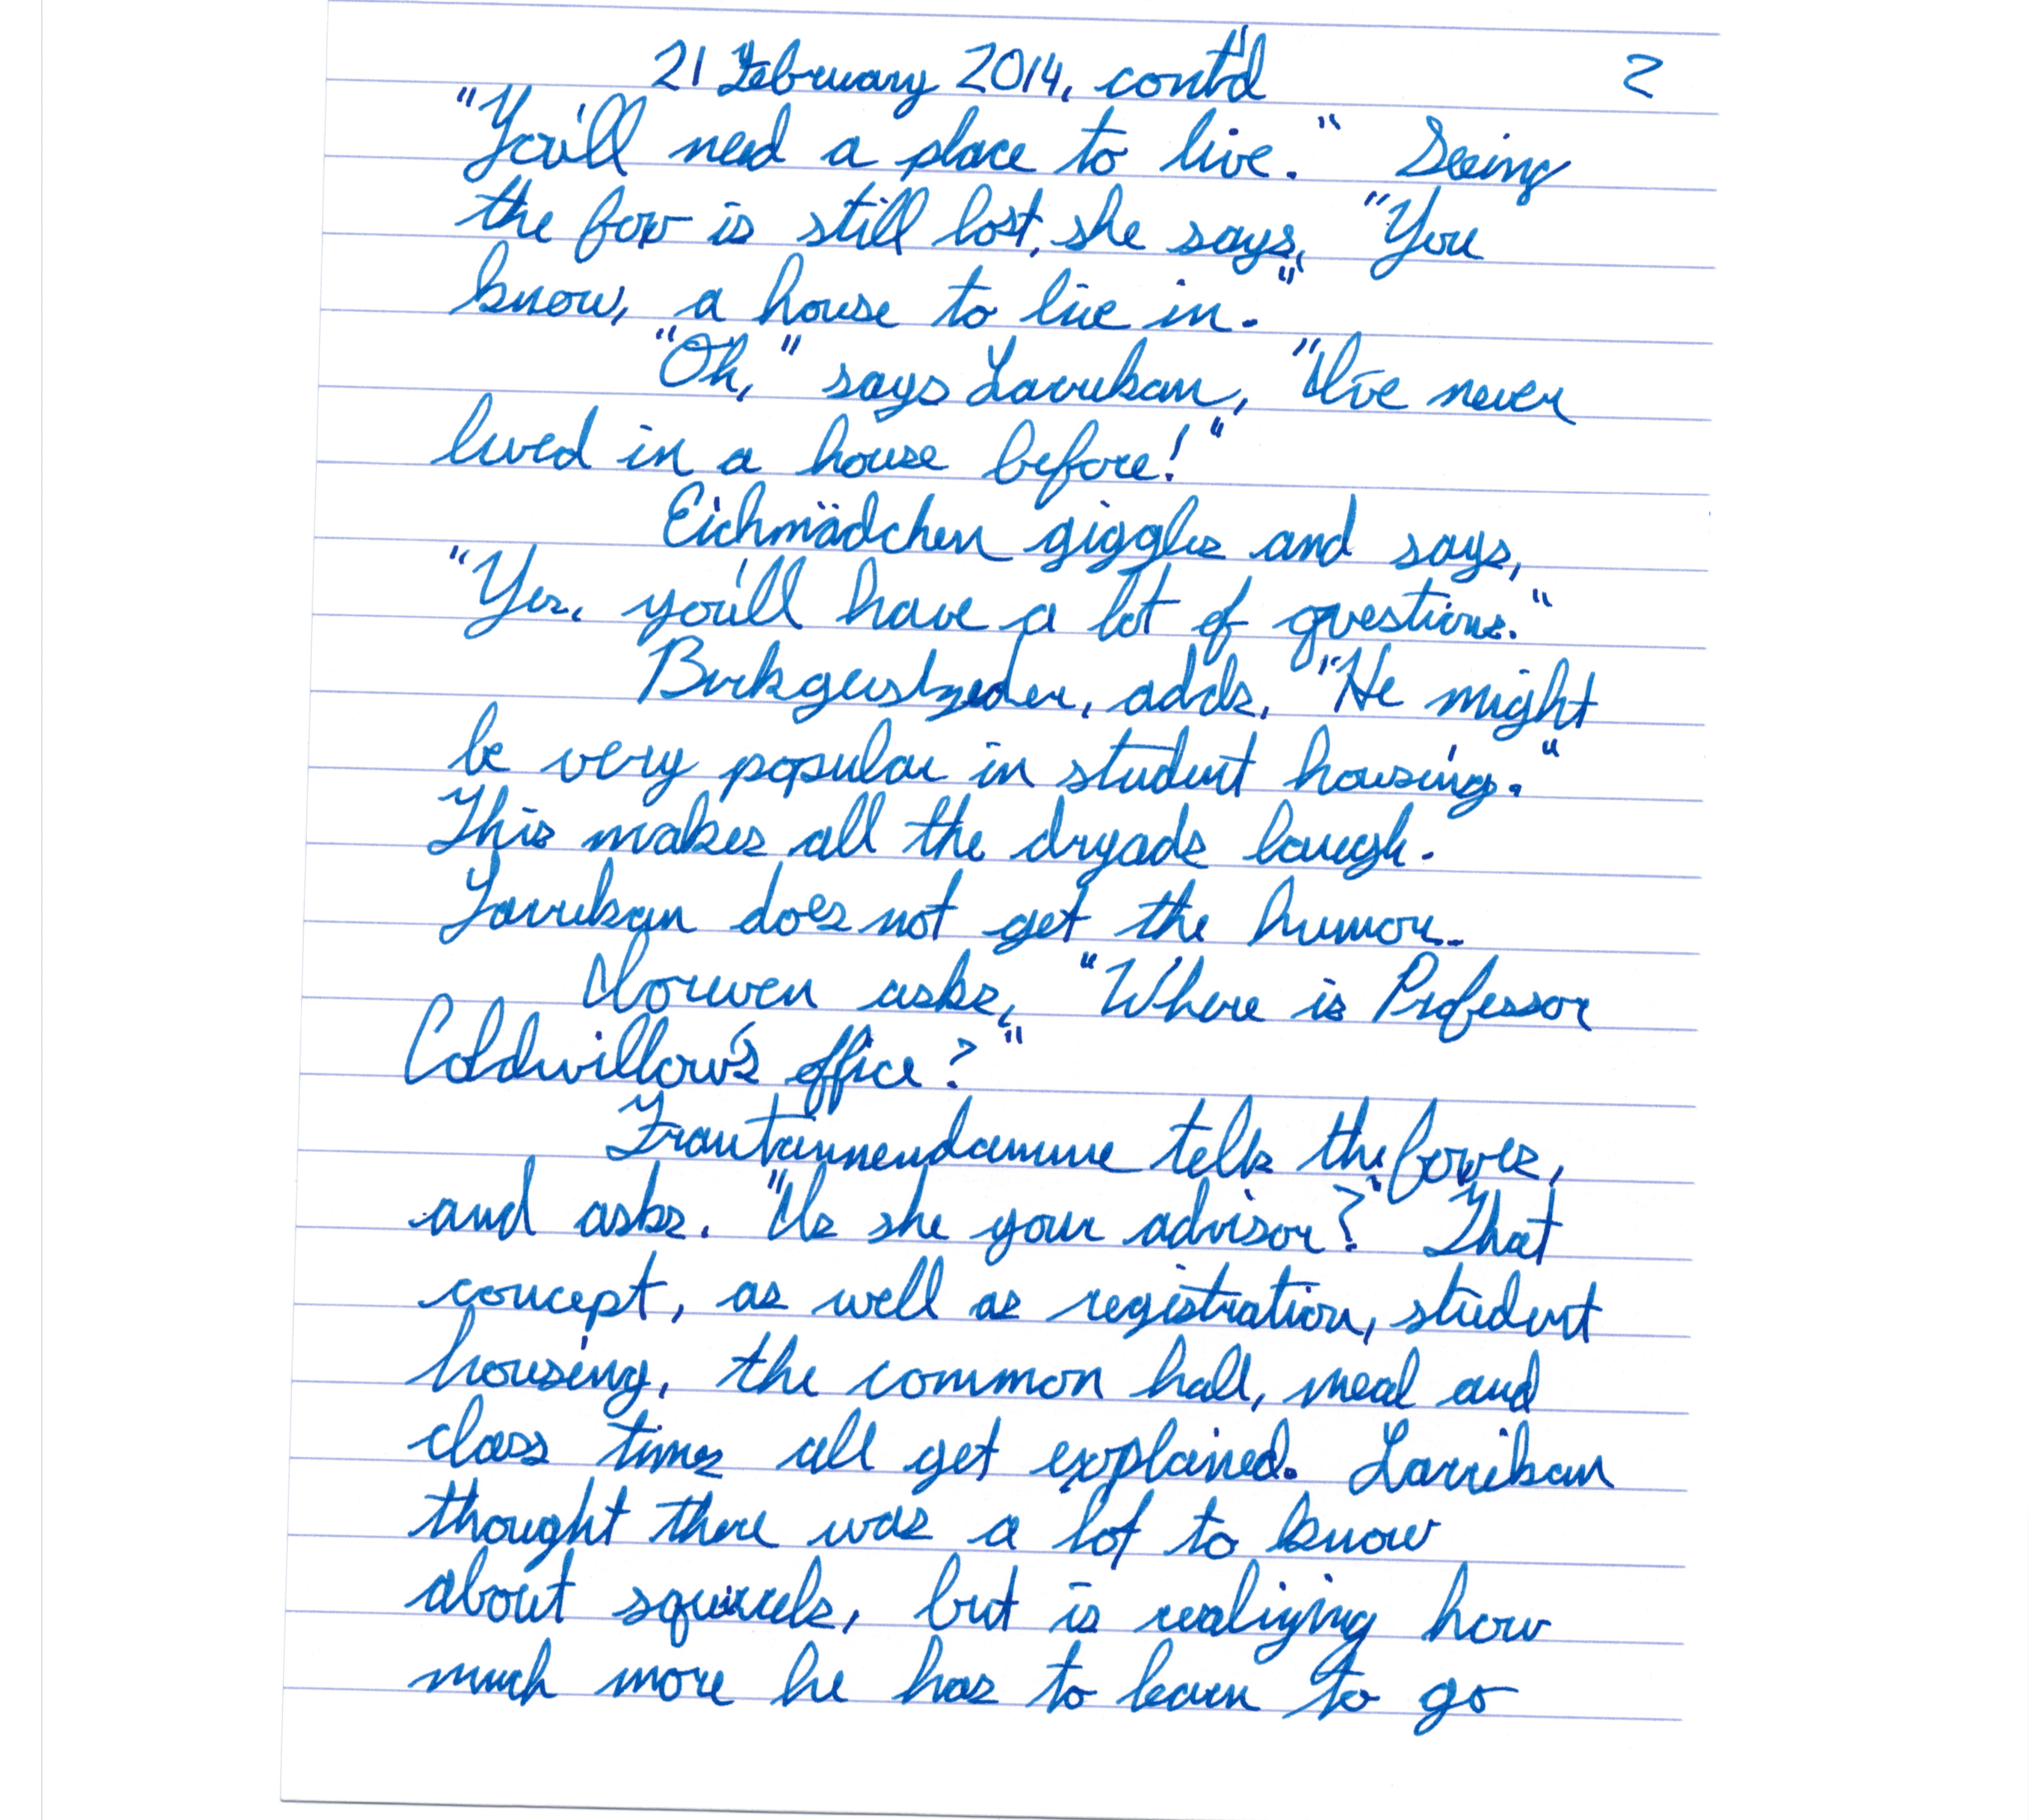 21 February 2014, cont'd 2
"You'll need a place to live." Seeing
the fox is still lost, she says, "You
know, a house to live in."
"Oh," says Larrikan, "I've never
lived in a house before!"
Eichmädchen giggles and says,
"Yes, you'll have a lot of questions."
adds, "He might
be very popular in student housing."
This makes all the dryads laugh.
Larrikan does not get the humor.
asks, "Where is Professor
Coldwillow's office?"
tells the foxes,
and asks. "Is she your advisor?" That
concept, as well as registration, student
housing, the common hall, meal and
class times all get explained. Larrikan
thought there was a lot to know
about squirrels, but is realizing how
much more he has to learn to go